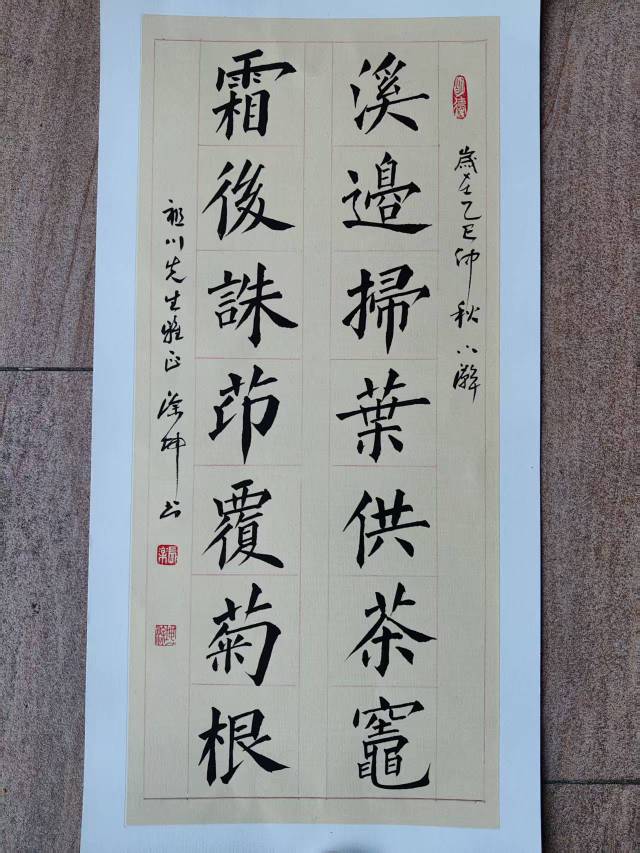 歲在乙巳仲秋
溪邊掃葉供茶竈
霜後誅茆覆菊根
川先生雅正